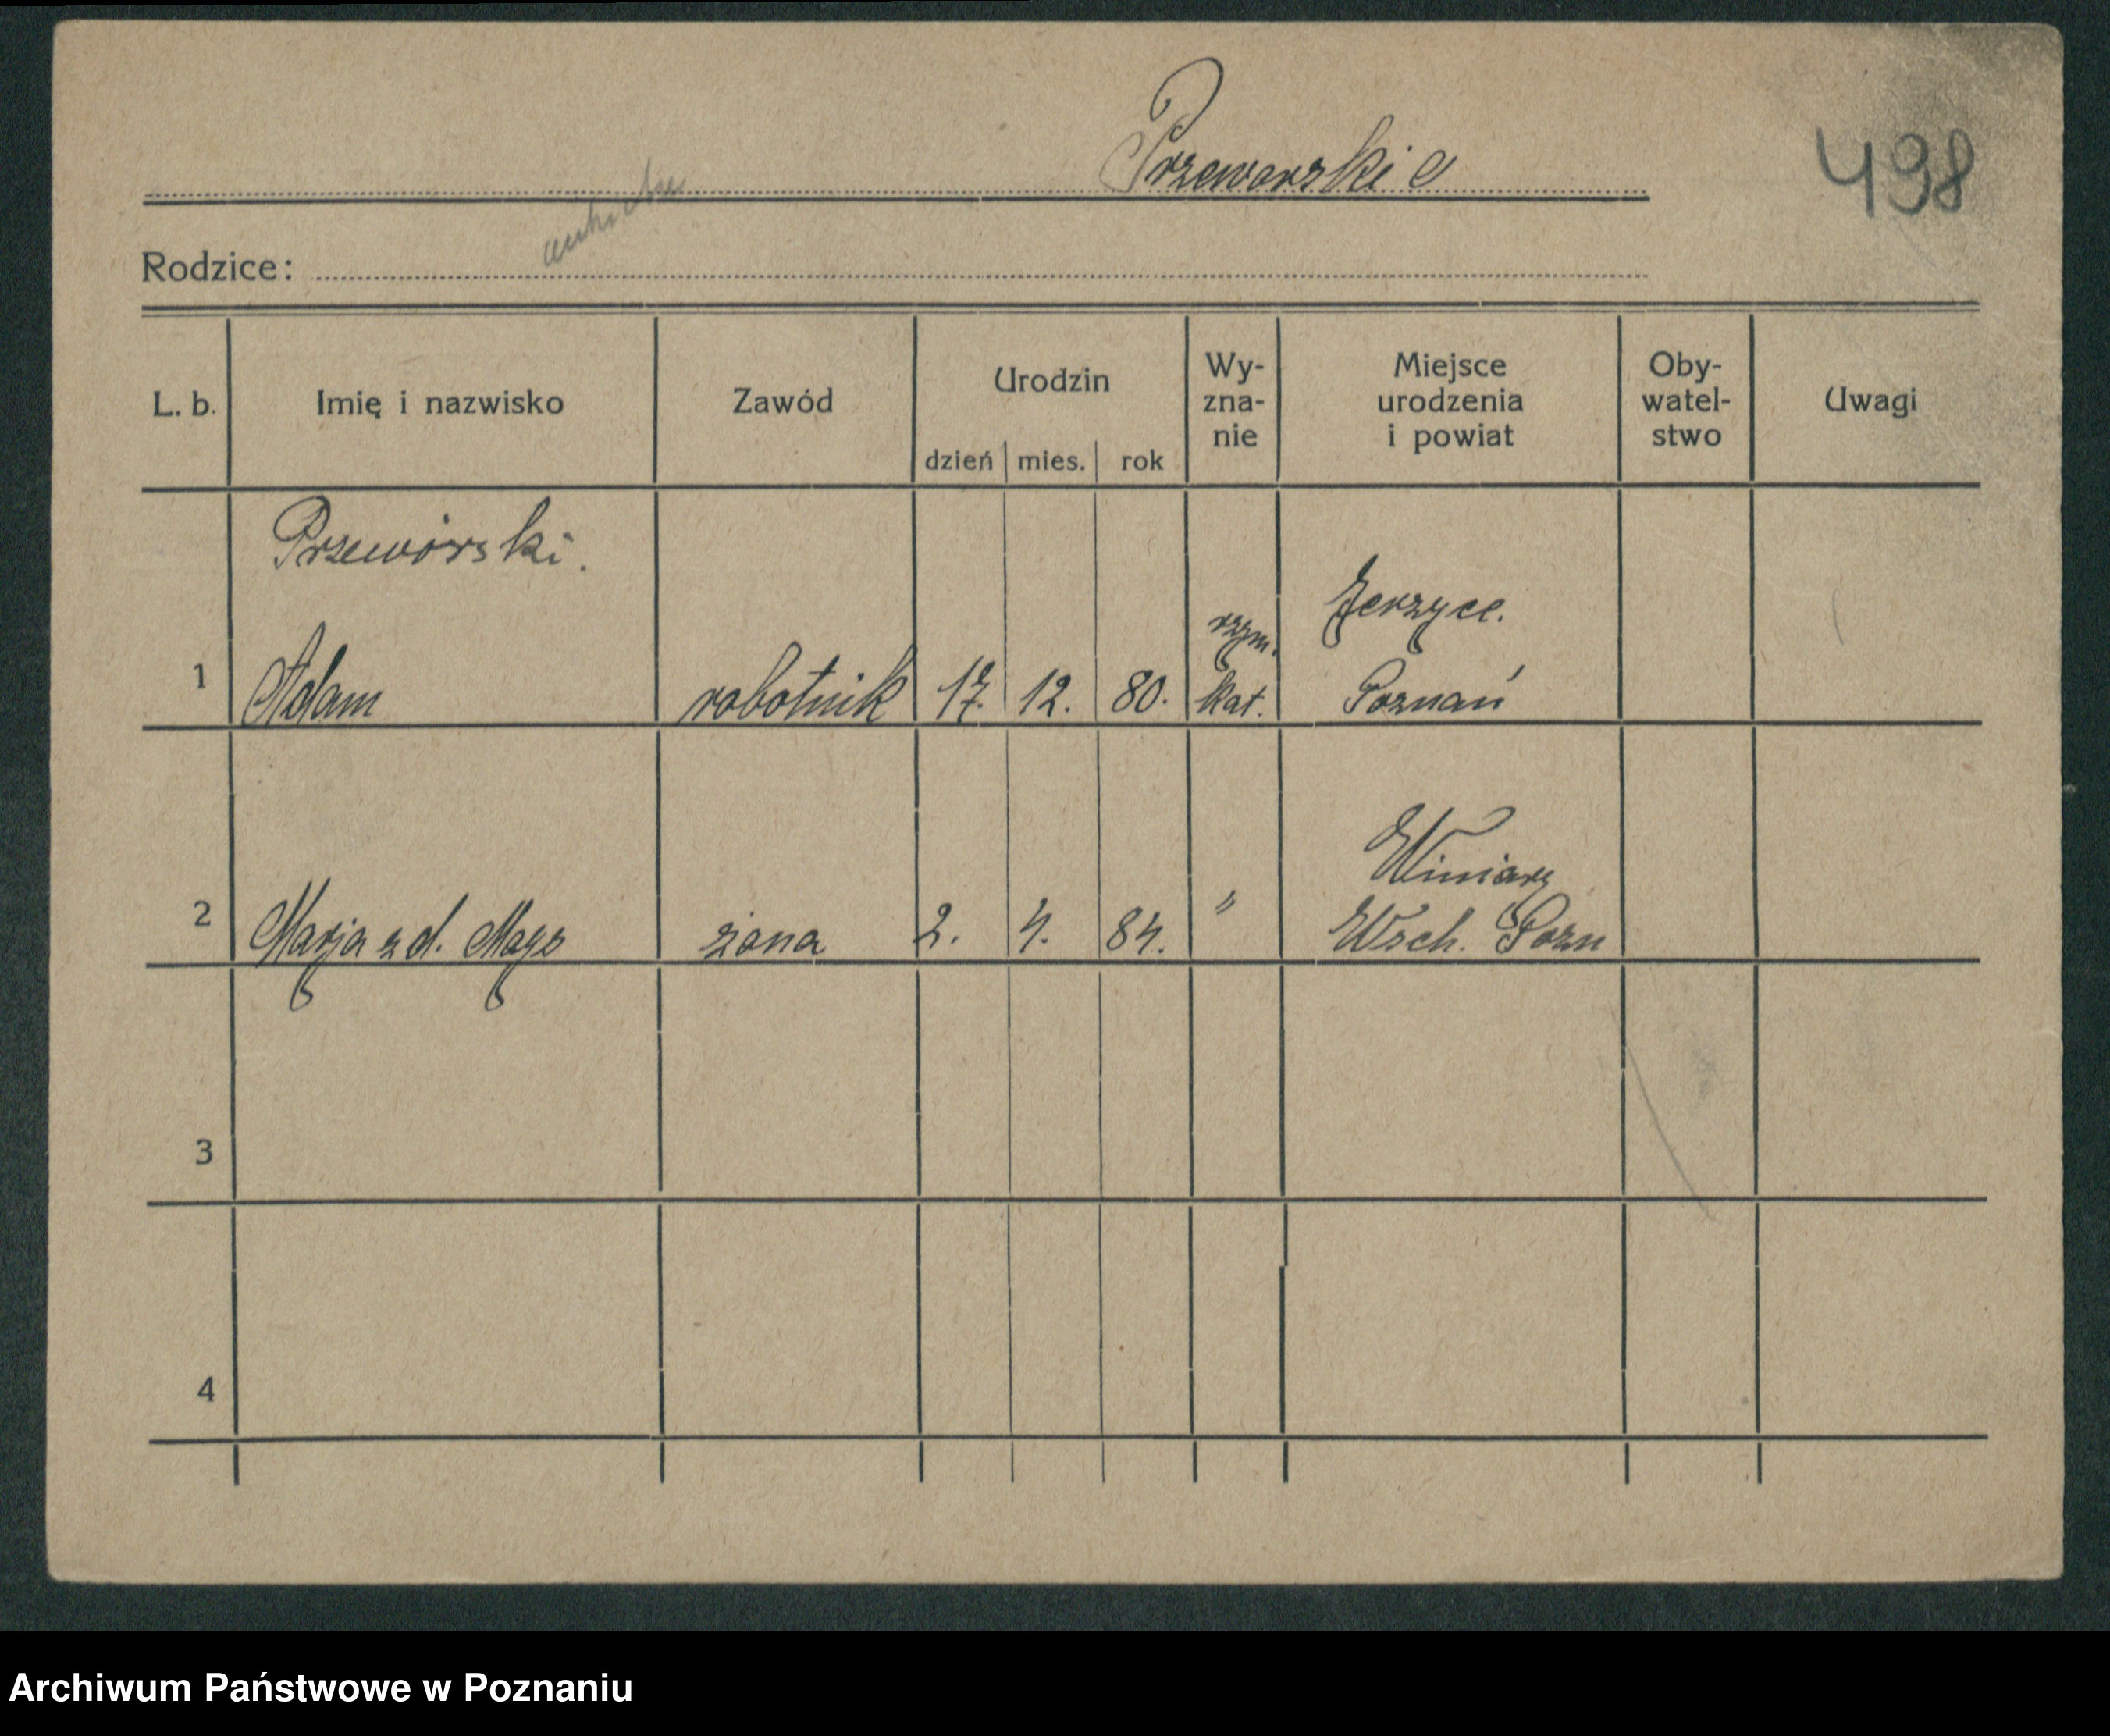 Przeworskie
498
Rodzice:
L. b.
Imię i nazwisko
Zawód
Urodzin
dzień mies. rok
Wy-
zna-
nie
Miejsce
urodzenia
i powiat
Oby-
watel-
stwo
Uwagi
Przeworski.
Jerzyce.
rzym.
1 Adam robotnik 17. 12. 80. kat. Poznań
Winiary
2 Marja z d. żona 2. 4. 84. " Wsch. Pozn
3
4
Archiwum Państwowe w Poznaniu